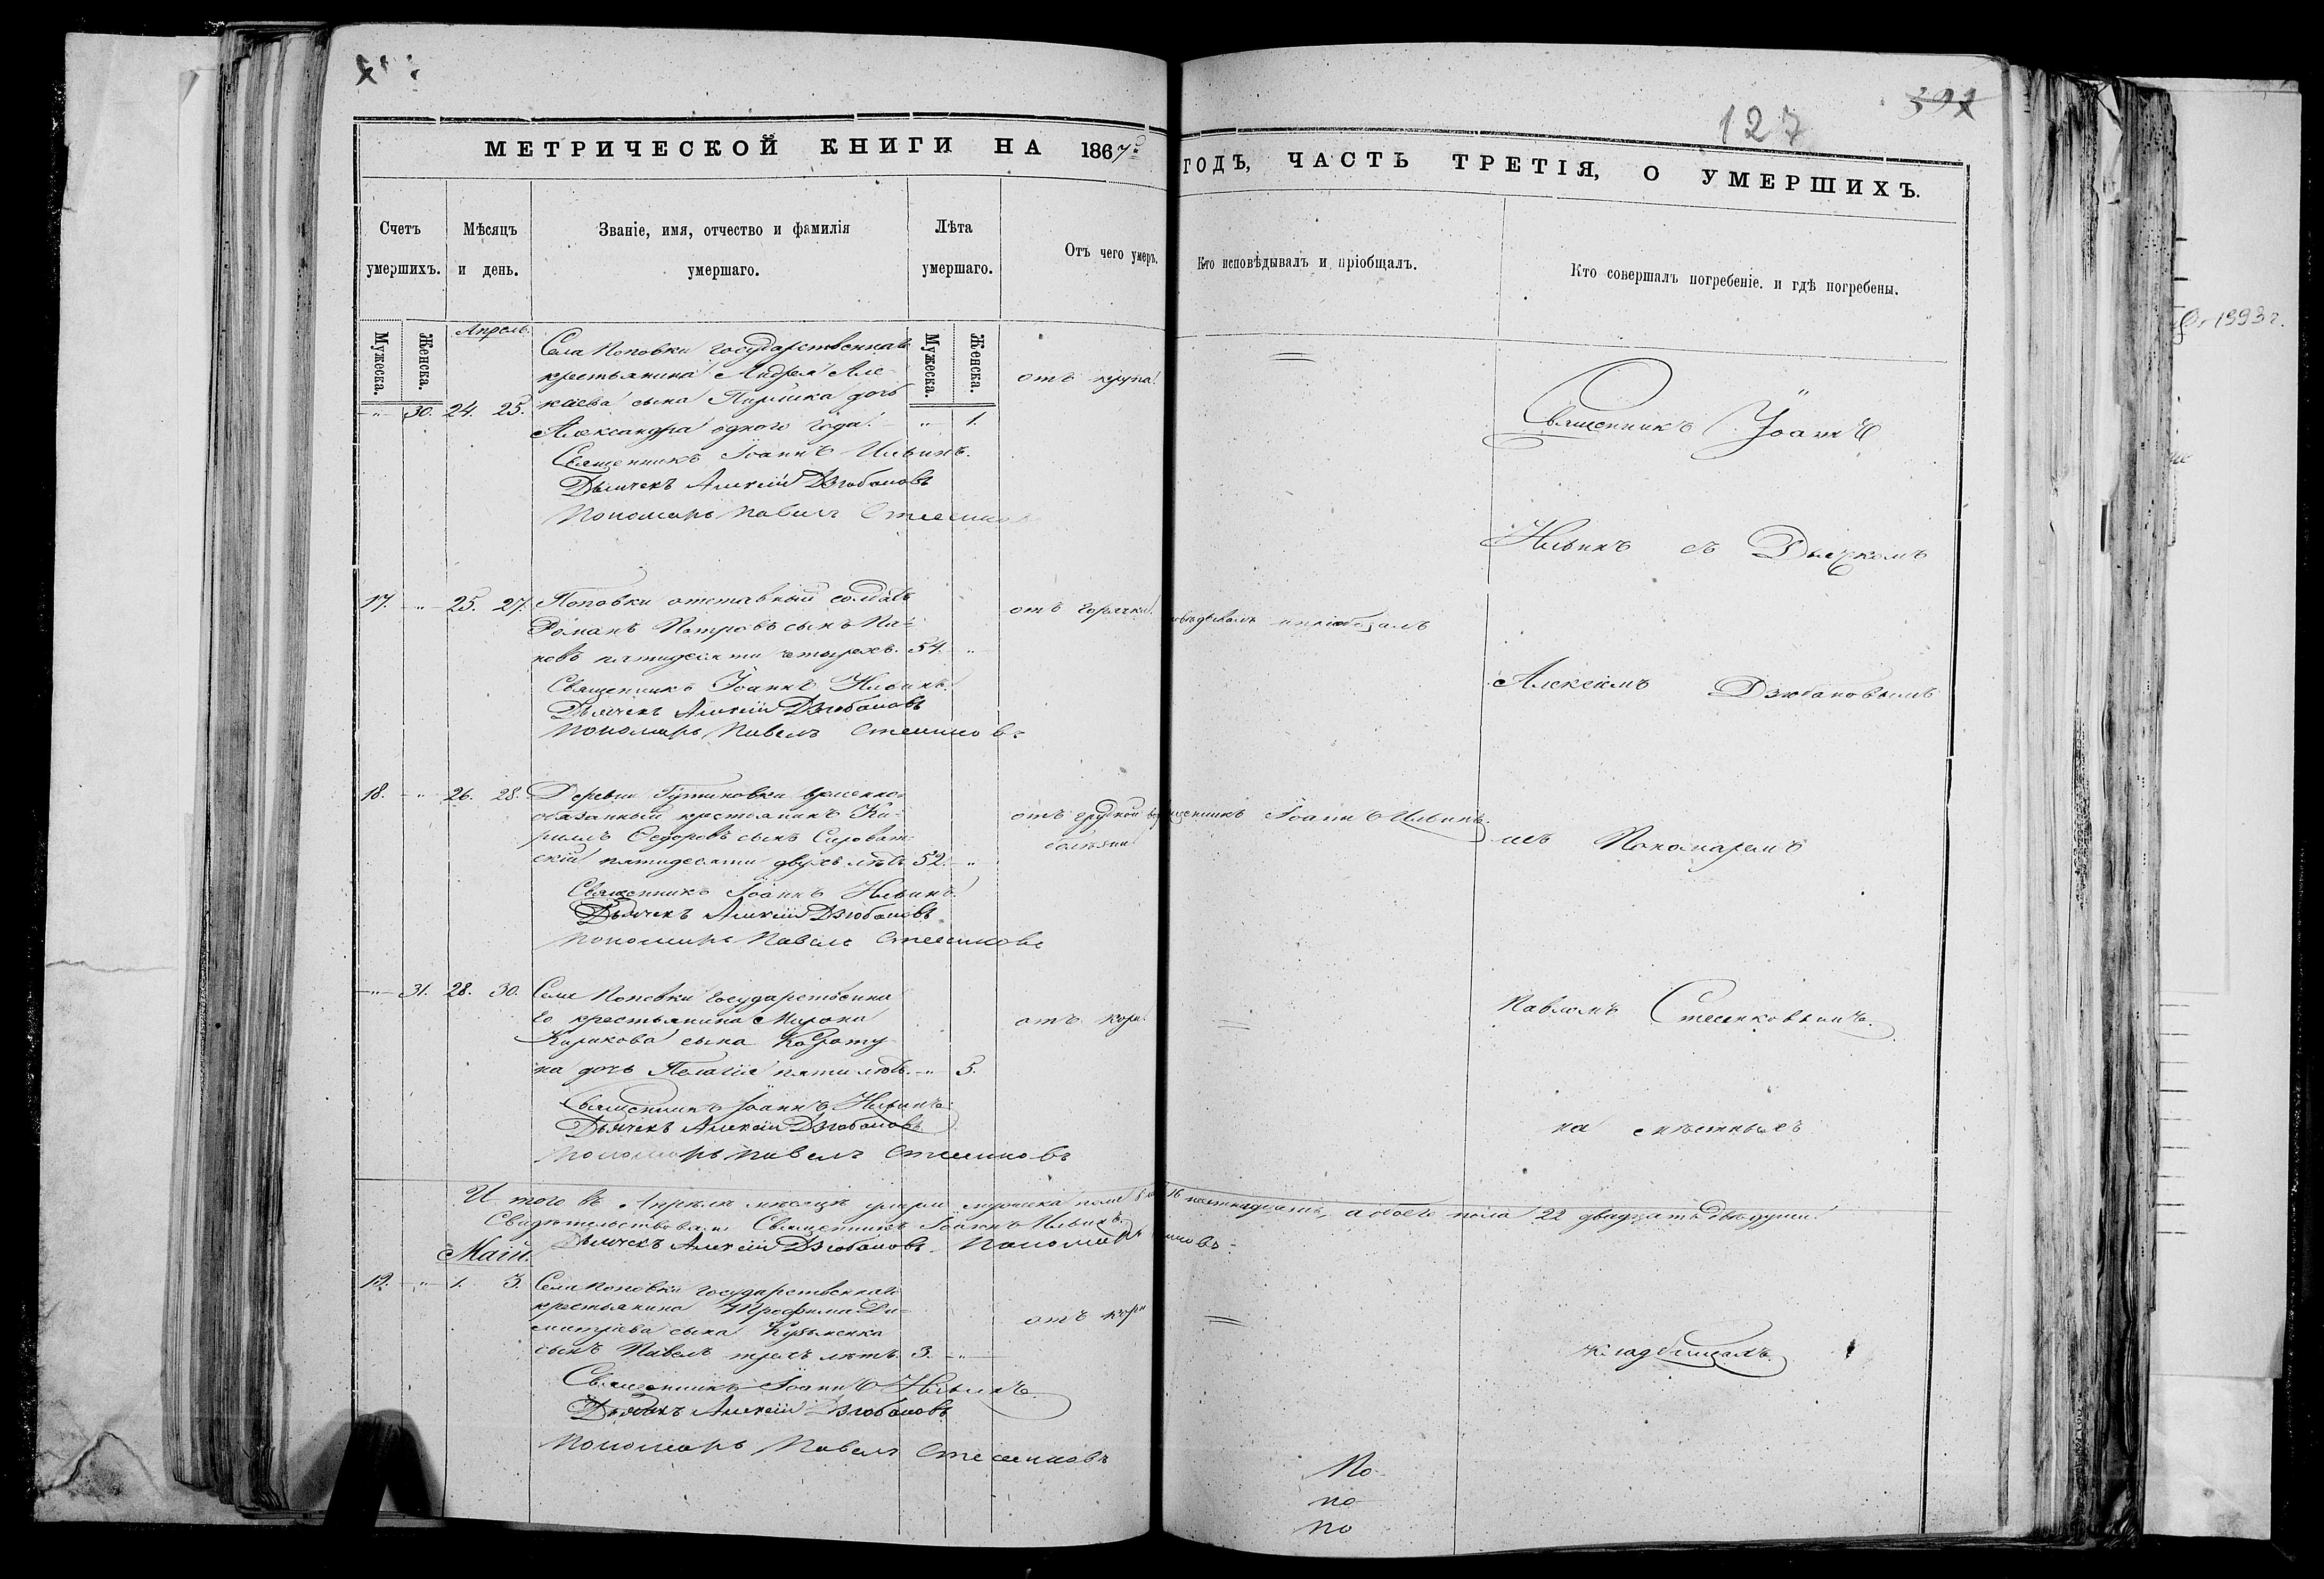 127
391
МЕТРИЧЕСКОЙ КНИГИ НА 1867й ГОДЪ, ЧАСТЬ ТРЕТІЯ, О УМЕРШИХЪ.
Счетъ умершихъ.
Мѣсяцъ и день.
Званіе, имя, отчество и фамилія умершаго.
Лѣта умершаго.
Отъ чего умеръ.
Кто исповѣдывалъ и пріобщалъ.
Кто совершалъ погребеніе. и гдѣ погребены.
Мужеска.
Женска.
Мужеска.
Женска.
Апрель.
Села Поповки государственнаго
крестьянина Андрея Але-
ксѣева сына дочь
" 30. 24. 25.
Александра одного года. " 1.
отъ крупа.
Священникъ Іоаннъ Ильинъ.
Дьячекъ Алексій Дзюбановъ
Пономарь Павелъ
17. " 25. 27. Поповки отставный солдатъ
Романъ Петровъ сынъ
новъ пятидесяти четырехъ. 54. "
отъ горячки.
пріобщалъ
Священникъ Іоаннъ Ильинъ.
Дьячекъ Алексій Дзюбановъ
Пономарь Павелъ Стесенковъ
18. " 26. 28. Деревни временно-
обязанный крестьянинъ Ки-
риллъ Ѳедоровъ сынъ Сыроват-
скій пятидесяти двухъ лѣтъ 52. "
отъ грудной
болѣзни
Іоаннъ Ильинъ.
Священникъ Іоаннъ Ильинъ.
Дьячекъ Алексій Дзюбановъ
Пономарь Павелъ Стесенковъ
" 31. 28. 30. Села Поповки государственна
го крестьянина Мирона
Кирикова сына Корату-
на дочь Пелагія пяти лѣтъ. " 5.
отъ кори.
Священникъ Іоаннъ Ильинъ.
Дьячекъ Алексій Дзюбановъ
Пономарь Павелъ Стесенковъ
И того въ Апрѣлѣ мѣсяцѣ умерли мужеска пола 16 шестнадцать, а обоего пола 22 двадцать двѣ души.
Свидѣтельствовали Священникъ Іоаннъ Ильинъ.
Дьячекъ Алексій Дзюбановъ.
Май.
19. " 1. 3. Села Поповки государственнаго
крестьянина Трофима Ди-
митріева сына Кузьменка
сынъ Павелъ трехъ лѣтъ. 3. "
отъ кори
Священникъ Іоаннъ Ильинъ.
Дьячекъ Алексій Дзюбановъ
Пономарь Павелъ Стесенковъ
Священникъ Іоаннъ
Ильинъ съ Дьячкомъ
Алексіемъ Дзюбановымъ
Пономаремъ
Павломъ Стесенковымъ.
на мѣстныхъ
кладбищахъ.
По-
по
по